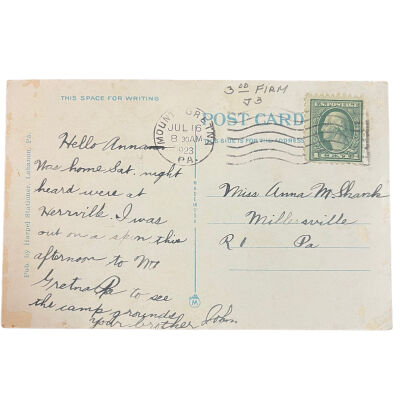 3 00 FIRM
J3
THIS SPACE FOR WRITING
POST CARD
THIS SIDE IS FOR THE ADDRESS
MOUNT GRETNA
JUL 16
8 30 AM
1923
PA.
U.S. POSTAGE
1 CENT 1
Pub. by Harpel Stationer, Lebanon, Pa.
Hello Anna
Was home Sat. night
heard were at
Herrville. I was
out on a spin this
afternoon to Mt
Gretna Pa to see
the camp grounds
your brother John
Miss Anna M. Shank
Millersville
R 1 Pa